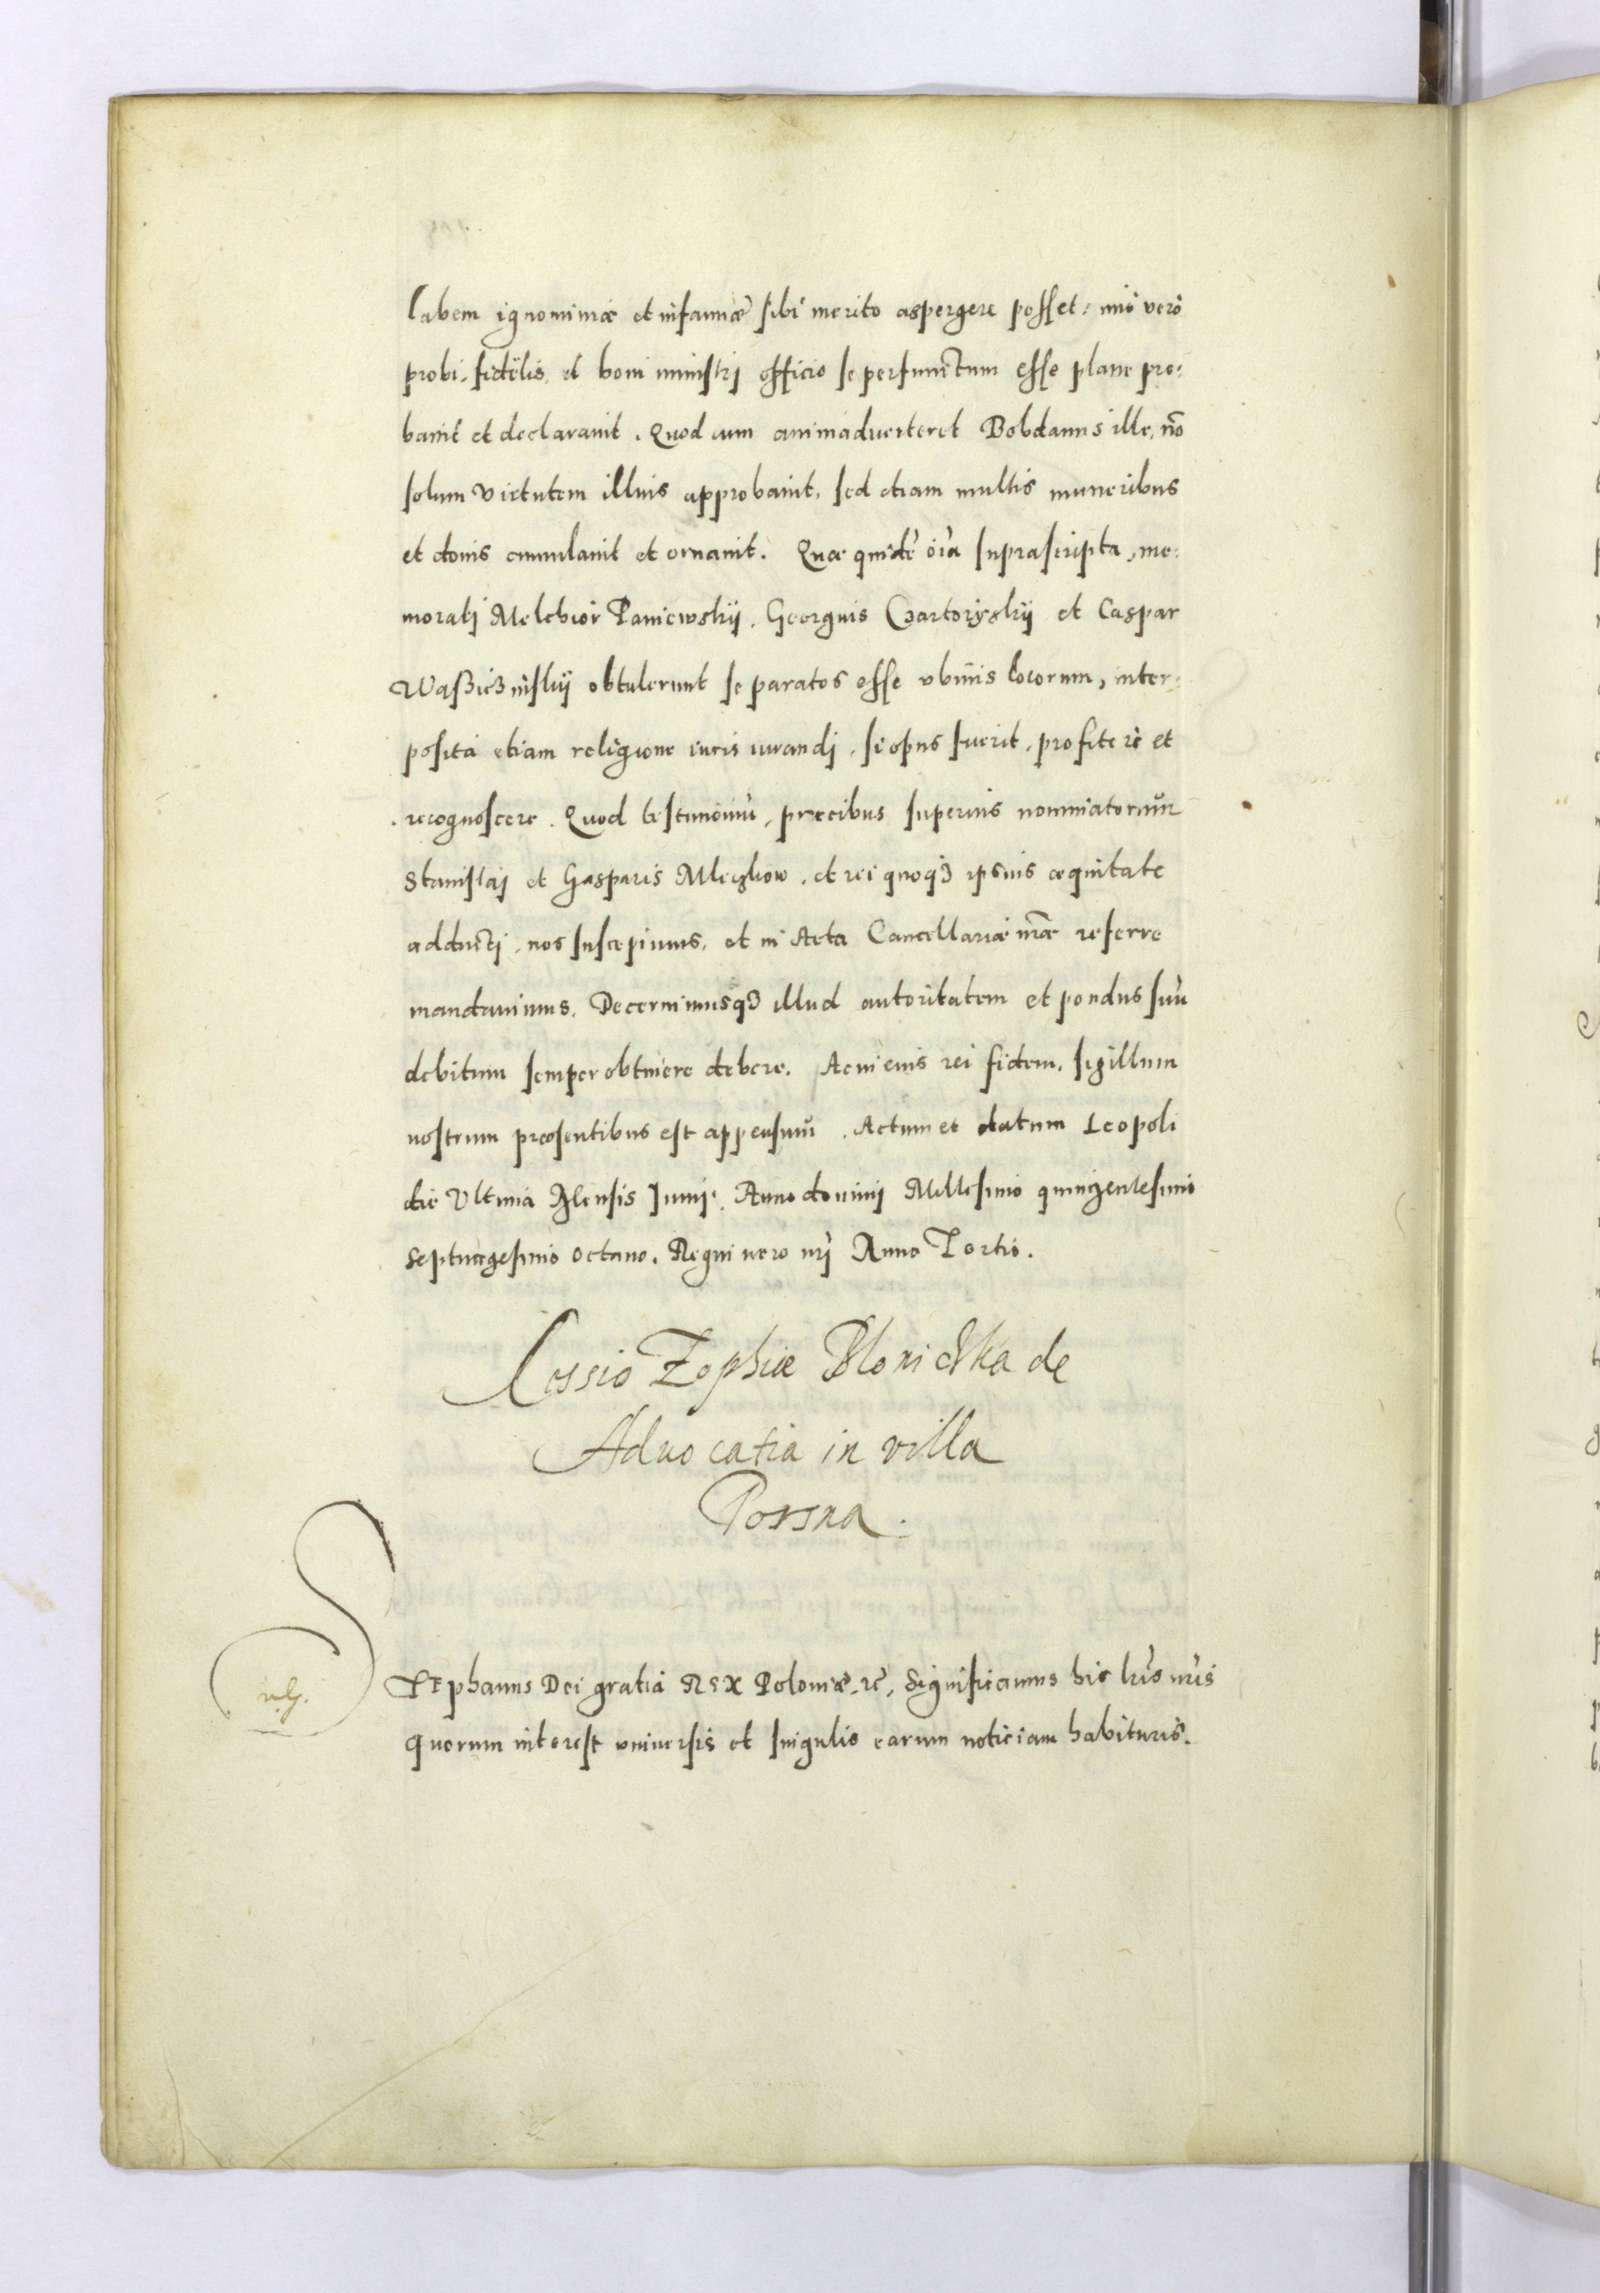 labem ignominiæ et infamiæ sibi merito aspergere posset: imò verò
probi, fidelis, et boni ministrj officio se perfunctum esse plane pro:
bauit et declarauit. Quod cum animaduerteret Bohdanus ille, nō
solum virtutem illius approbauit, sed etiam multis muneribus
et donis cumulauit et ornauit. Quæ quidē oīa suprascripta, me:
moratj Melchior Paniewskij, Georgius Czartoryskij et Caspar
obtulerunt se paratos esse vbiuis locorum, inter:
posita etiam religione iuris iurandj, si opus fuerit, profiteri et
recognoscere. Quod testimoniū, precibus superius nominatorum
Stanislaj et Gasparis Mleczkow, et rei quoqȝ ipsius æquitate
adductj, nos suscepimus, et in Acta Cancellariæ nrāe referre
mandauimus. Decernimusqȝ illud autoritatem et pondus suū
debitum semper obtinere debere. In cuius rei fidem, sigillum
nostrum præsentibus est appensum. Actum et datum Leopoli
die Vltima Mensis Junij. Anno dominj Millesimo quingentesimo
septuagesimo octauo. Regni uero nrī Anno Tertio.
Cessio Zophiæ Blonickka de
Aduocatia in villa
Possna.
Stephanus Dei gratia REX Poloniæ, rc̄, Significamus his lrīs nrīs
quorum interest vniuersis et singulis earum noticiam habituris.